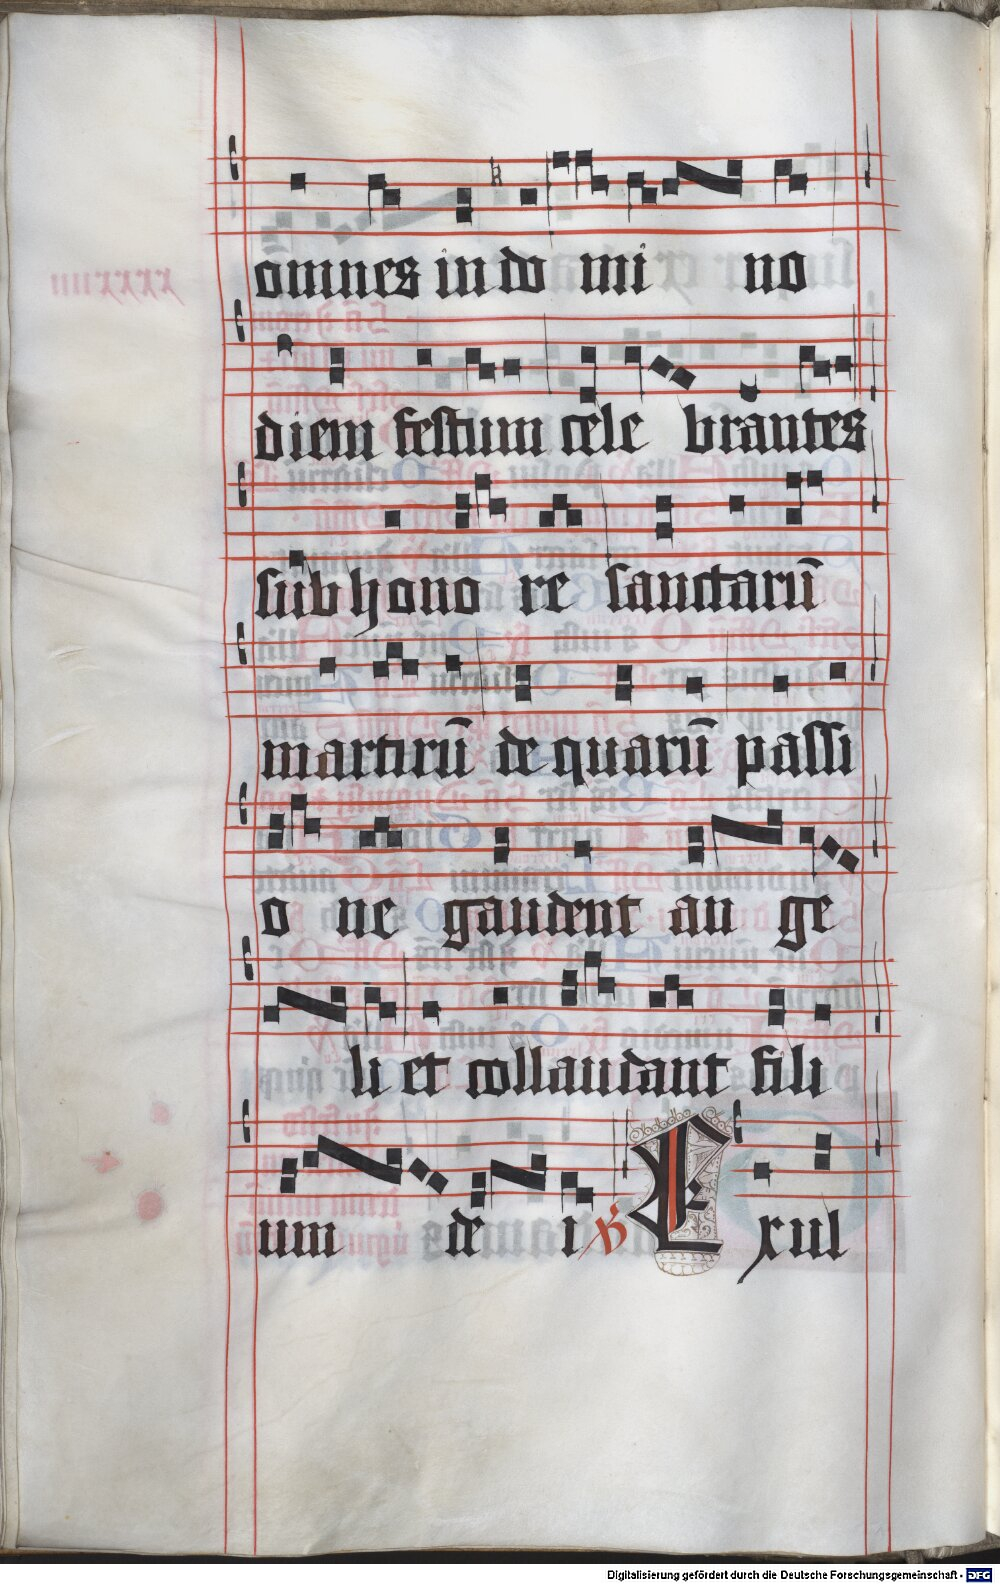 omnes in do mi no
diem festum cele brantes
sub hono re sanctarū
martirū de quarū passi
o ne gaudent an ge
li et collaudant fili
um de i ℣ Exul
Digitalisierung gefördert durch die Deutsche Forschungsgemeinschaft - DFG